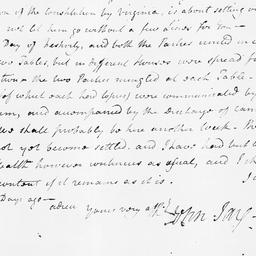 on of the constitution by Virginia, is about setting out
not let him go without a few Lines for You—
Day of festivity, and both the Parties united in c
two Tables, but in different Houses were spread f
town & the two Parties mingled at each Table.
of which each had copies) were communicated by
um, and accompanied by the Discharge of Can
we shall probably be here another Week. Th
not yet become settled. and I have had but l
Health however continues as usual, and I sh
content if it remains as it is.
Days ago— adieu Yours very aff.
John Jay